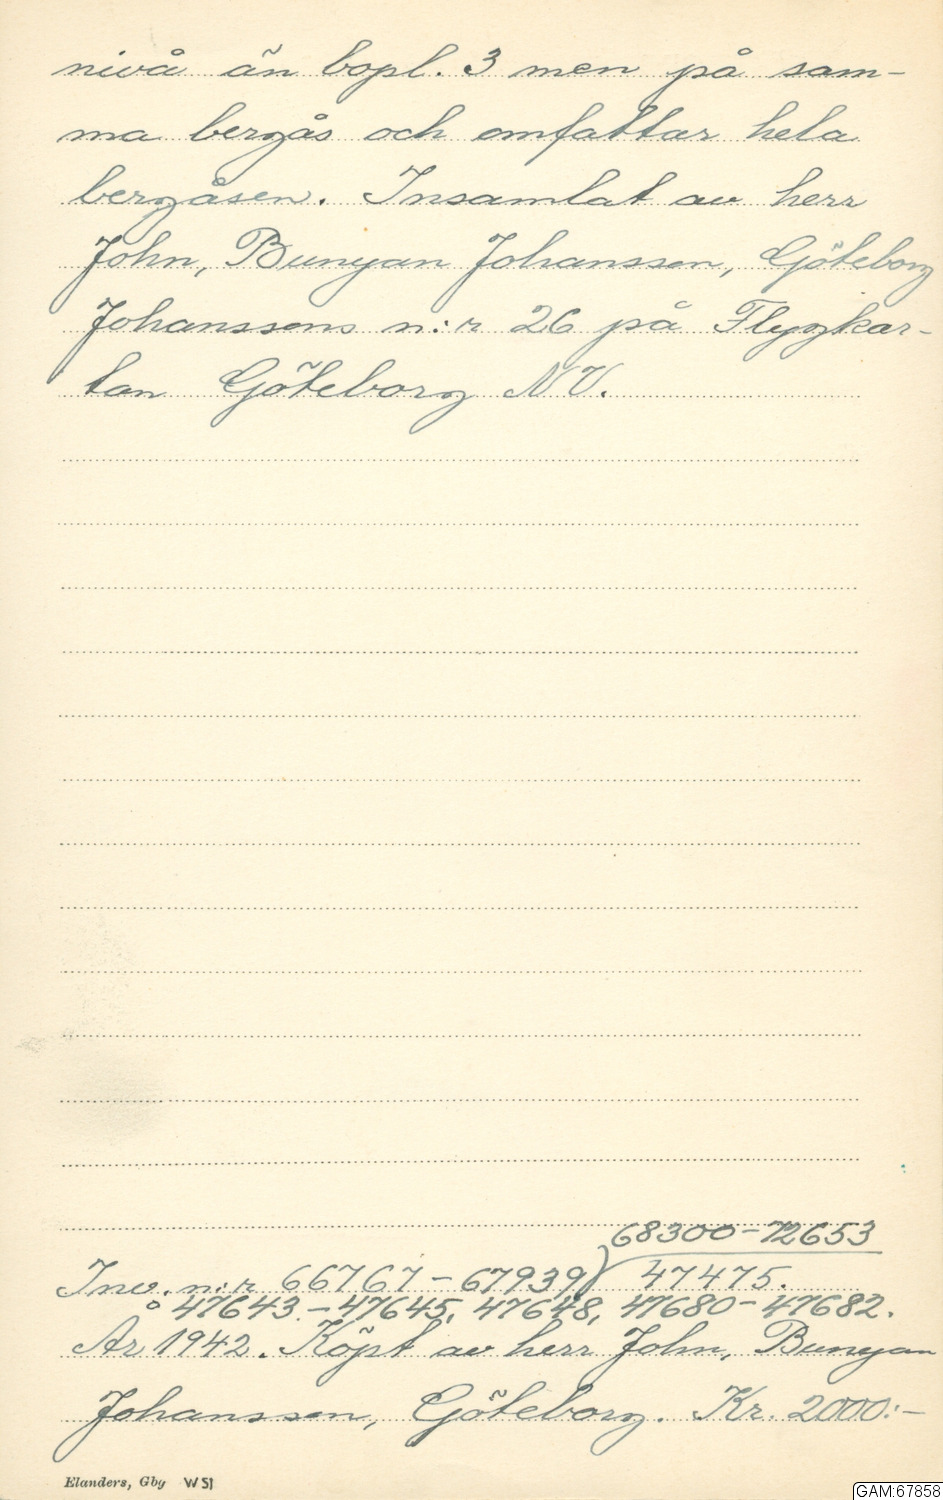 nivå än bopl. 3 men på sam-
ma bergås och omfattar hela
bergåsen. Insamlat av herr
John, Bunyan Johansson, Göteborg
Johanssons n:r 26 på Flygkar-
tan Göteborg NV.
68300-72653
Inv. n:r 66767-67939) 47475.
47643.-47645, 47648, 47680-47682.
År 1942. Köpt av herr John, Bunyan
Johansson, Göteborg. Kr. 2000:-
Elanders, Gby W51
GAM:67858